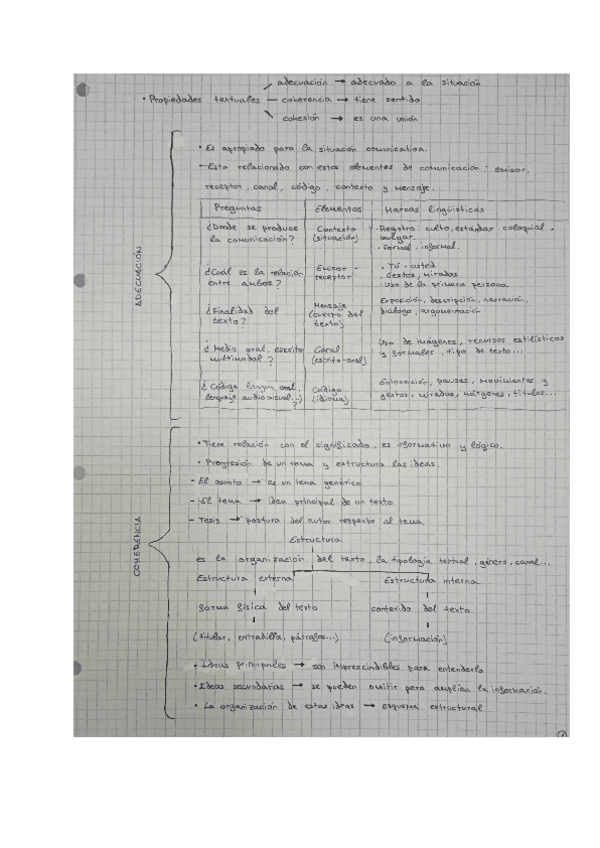 adecuación → adecuado a la situación
• Propiedades textuales — coherencia → tiene sentido
cohesión → es una unión
ADECUACIÓN
• Es apropiado para la situación comunicativa.
- Esta relacionado con estos elementos de comunicación: emisor,
receptor, canal, código, contexto y mensaje.
Preguntas Elementos Marcas lingüísticas
¿Donde se produce la comunicación? Contexto (situación) • Registro: culto, estándar, coloquial, vulgar.
• Formal, informal.
¿Cuál es la relación entre ambos? Emisor - receptor • Tú - usted
• Gestos, miradas
• Uso de la primera persona
¿Finalidad del texto? Mensaje (cuerpo del texto) Exposición, descripción, narración, diálogo, argumentación
¿Medio oral, escrito multimodal? Canal (escrito-oral) Uso de imágenes, recursos estilísticos y formales, tipo de texto...
¿Código lengua oral, lenguaje audiovisual...)? Código (idioma) Entonación, pausas, movimientos y gestos, miradas, márgenes, títulos...
COHERENCIA
• Tiene relación con el significado, es informativo y lógico.
• Progresión de un tema y estructura las ideas.
- El asunto → es un tema genérico
- El tema → idea principal de un texto
- Tesis → postura del autor respecto al tema
Estructura
es la organización del texto, la tipología textual, género, canal...
Estructura externa Estructura interna
forma física del texto contenido del texto
(titular, entradilla, párrafos...) (información)
• Ideas principales → son imprescindibles para entenderlo
• Ideas secundarias → se pueden omitir pero amplían la información.
• La organización de estas ideas → esquema estructural